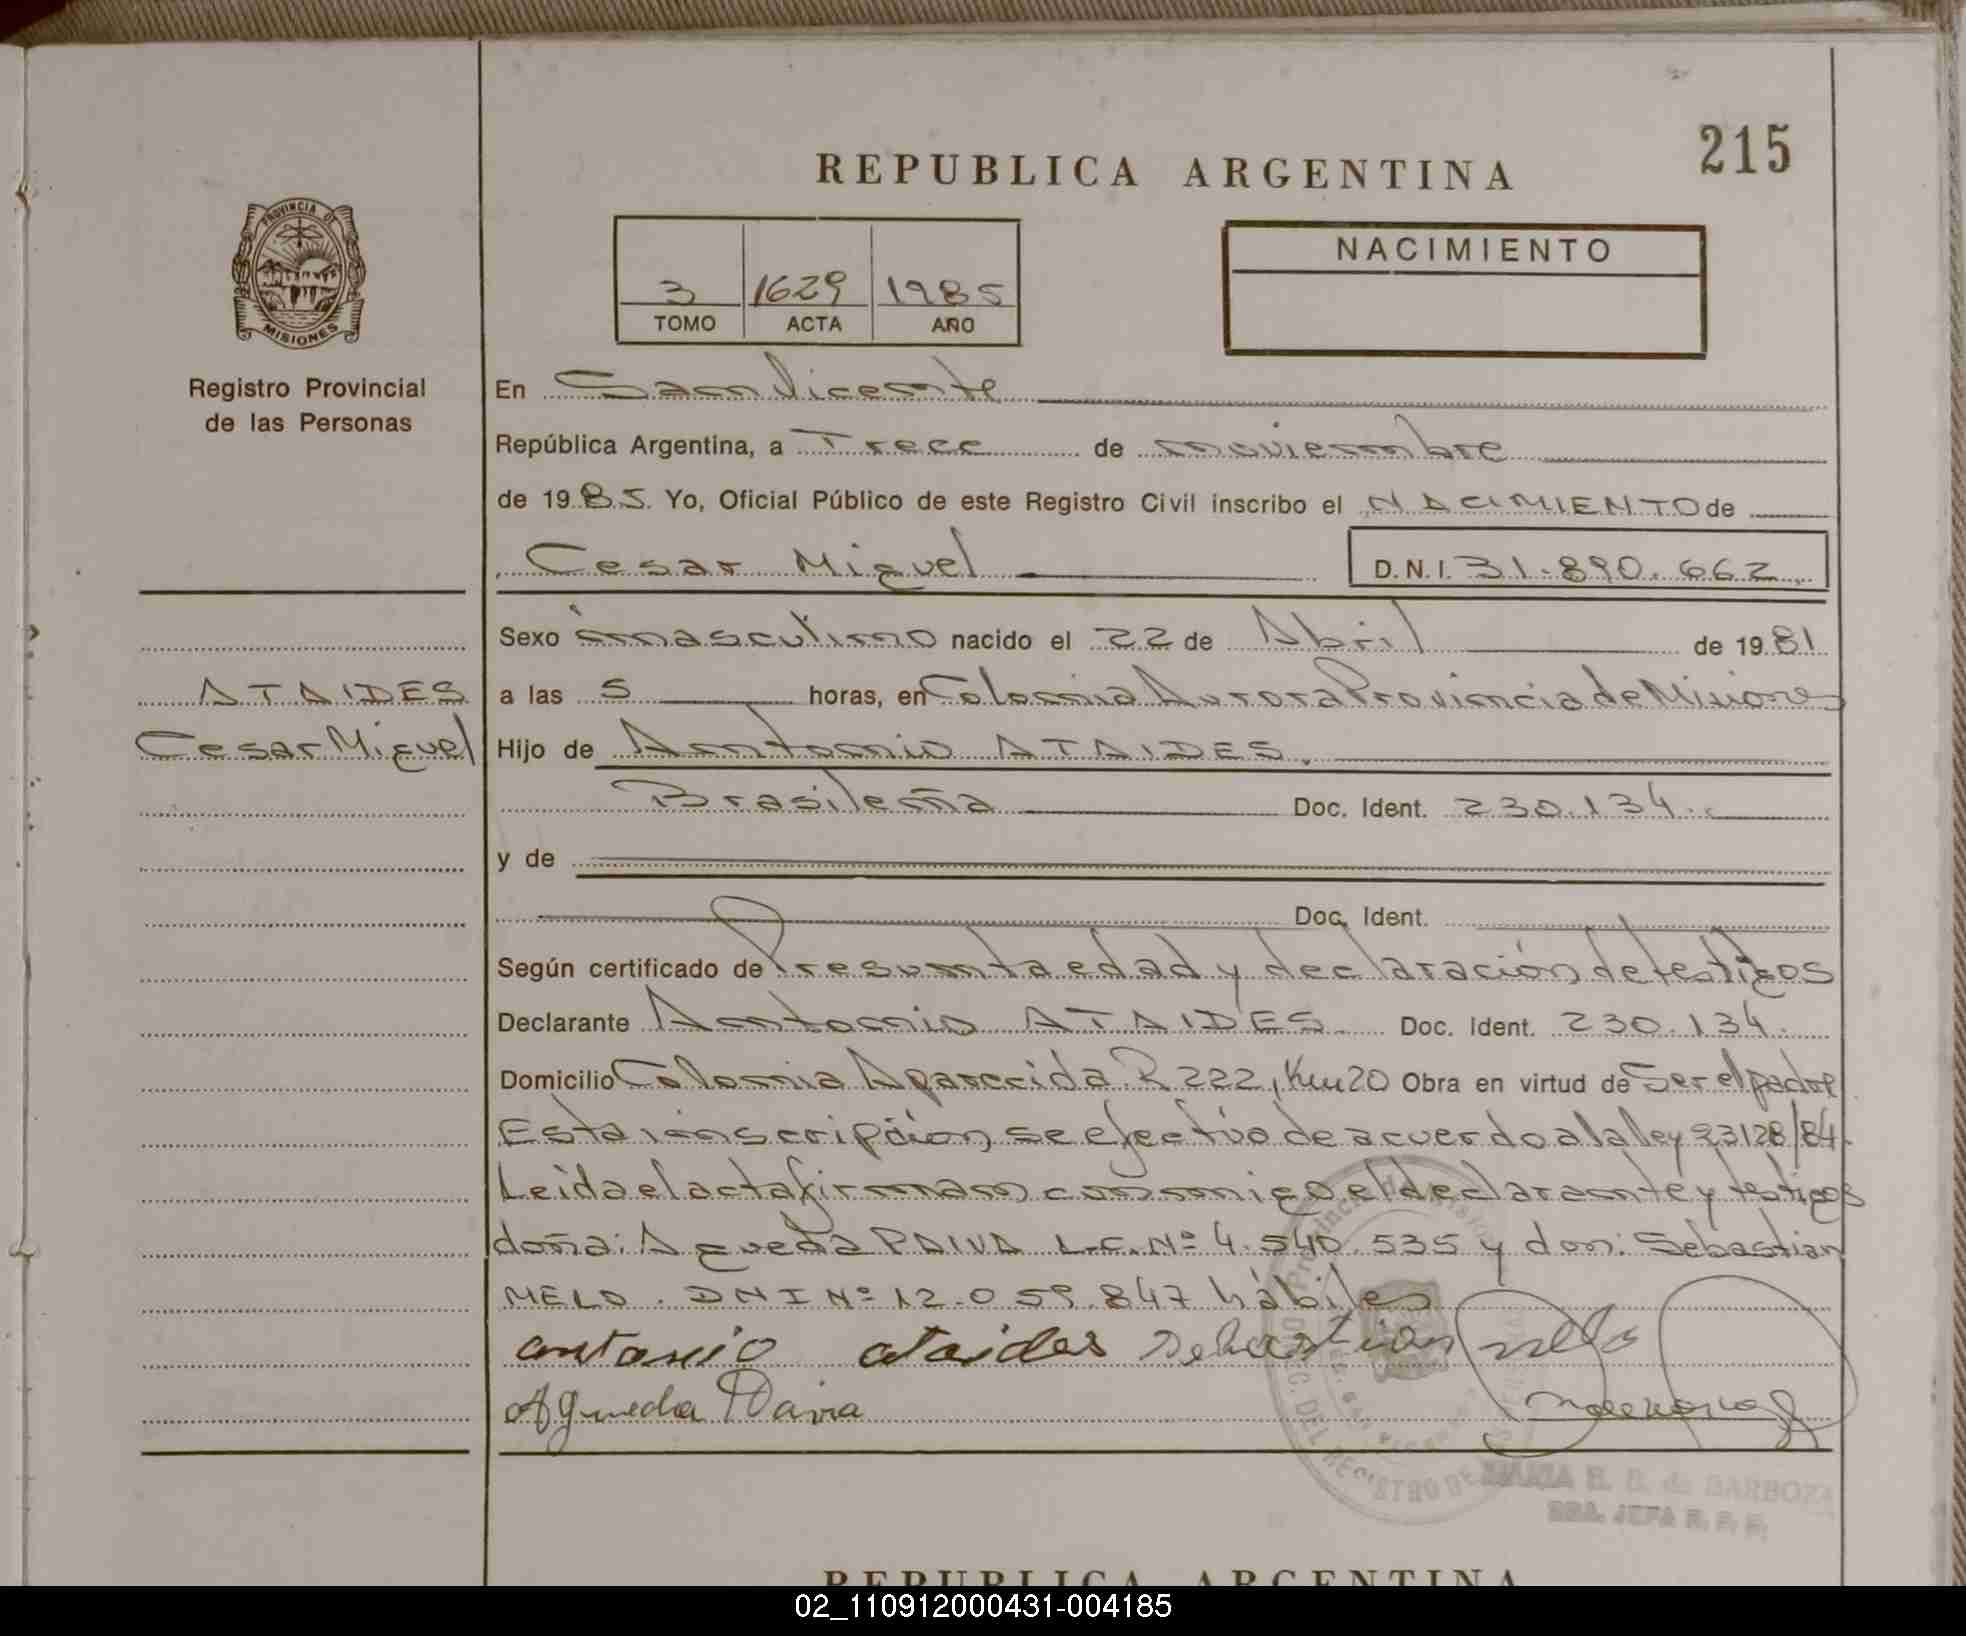 215
REPUBLICA ARGENTINA
PROVINCIA DE
MISIONES
Registro Provincial
de las Personas
3 1629 1985
TOMO ACTA AÑO
NACIMIENTO
En San Vicente
República Argentina, a Trece de noviembre
de 1985. Yo, Oficial Público de este Registro Civil inscribo el NACIMIENTO de
Cesar Miguel D.N.I. 31.890.662
Sexo masculino nacido el 22 de Abril de 1981
ATAIDES
Cesar Miguel
a las 5 horas, en Colonia Aurora Provincia de Misiones
Hijo de Antonio ATAIDES.
Brasileña Doc. Ident. 230.134.
y de
Doc. Ident.
Según certificado de Presunta edad y declaración de testigos
Declarante Antonio ATAIDES Doc. Ident. 230.134.
Domicilio Colonia Aparecida R 222, Km 20 Obra en virtud de Ser el padre
Esta inscripción se efectúo de acuerdo a la ley 23128/84.
Leida el acta firman conmigo el declarante y testigos
doña: Agueda PAIVA L.C. Nº 4.540.535 y don: Sebastian
MELO. DNI Nº 12.059.847 hábiles
antonio ataides Sebastian Mello
Agueda Paiva
B. de BARBOZA
JEFA R. P. P.
REPUBLICA ARGENTINA
02_110912000431-004185